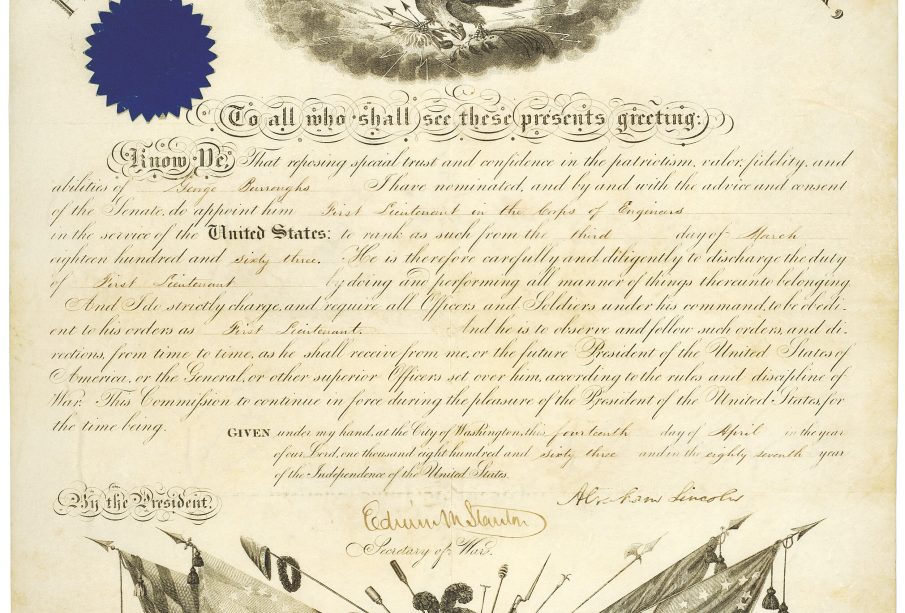 To all who shall see these presents greeting:
Know Ye, That reposing special trust and confidence in the patriotism, valor, fidelity, and
abilities of George Burroughs I have nominated, and by and with the advice and consent
of the Senate, do appoint him First Lieutenant in the Corps of Engineers
in the service of the United States: to rank as such from the third day of March
eighteen hundred and sixty three. He is therefore carefully and diligently to discharge the duty
of First Lieutenant by doing and performing all manner of things thereunto belonging
And I do strictly charge, and require all Officers and Soldiers under his command, to be obedi-
ent to his orders as First Lieutenant. And he is to observe and follow such orders, and di-
rections, from time to time, as he shall receive from me, or the future President of the United States of
America, or the General, or other superior Officers set over him, according to the rules and discipline of
War. This Commission to continue in force during the pleasure of the President of the United States, for
the time being.
GIVEN under my hand, at the City of Washington, this fourteenth day of April in the year
of our Lord, one thousand eight hundred and sixty three and in the eighty seventh year
of the Independence of the United States.
By the President.
Abraham Lincoln
Edwin M Stanton
Secretary of War.